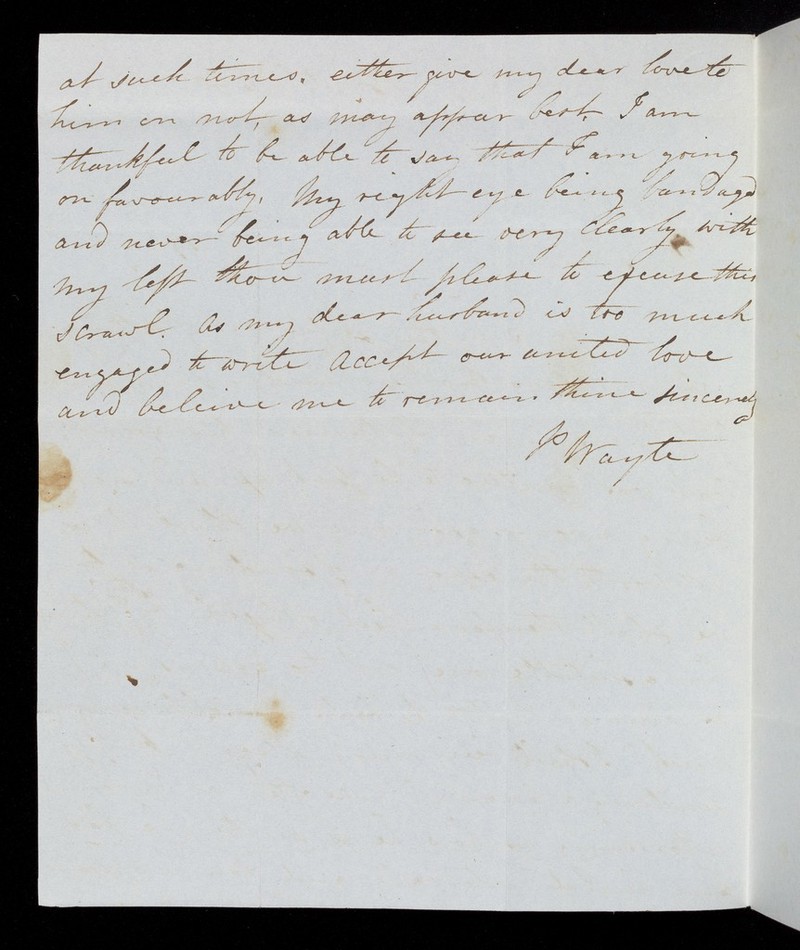 at such times. either give my dear love to
him or not, as may appear best. I am
thankful to be able to say that I am going
on favourably. My right eye being bandaged
and never being able to see very clearly with
my left thou must please to excuse this
scrawl. As my dear husband is too much
engaged to write accept our united love
and beleive me to remain. thine sincerely
P Wayte